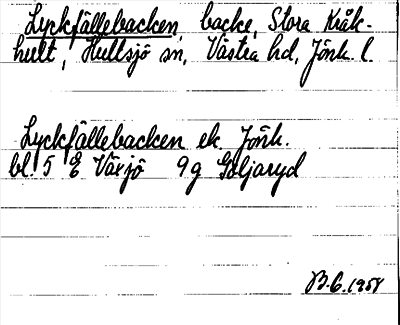 Lyckfällebacken, backe, Stora Kråk-
hult, Hultsjö sn, Västra hd, Jönk. l.
Lyckfällebacken ek. Jönk.
bl. 5 E Växjö 9g Galjaryd
B.G. 1958